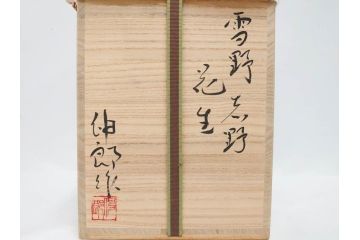 雪野志野
花生
伸郎作